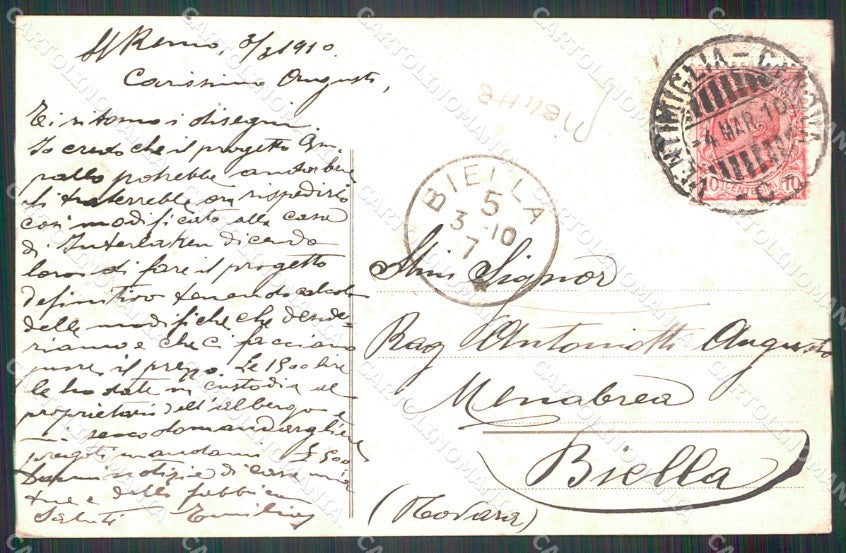 S. Remo, 3/3 1910.
Carissimo Augusto,
Ti ritorno i disegni
Io credo che il progetto
potrebbe andar bene
Si tratterebbe ora rispedirlo
così modificato alla casa
di Interlaken dicendo
loro di fare il progetto
definitivo tenendo calcolo
delle modifiche che deside-
riamo e che ci facciano
pure il prezzo. Le 1500 lire
le ho date in custodia al
proprietario dell'albergo e
domandargliene
mandami £ 500
Dammi notizie di casa mia
tue e della fabbrica
Saluti Emilio
VENTIMIGLIA - GENOVA
-4 MAR. 10
10 CENTESIMI 10
BIELLA
5
3 10
7
Signor
Rag Antoniotti Augusto
Menabrea
Biella
(Novara)
CARTOLINOMANIA